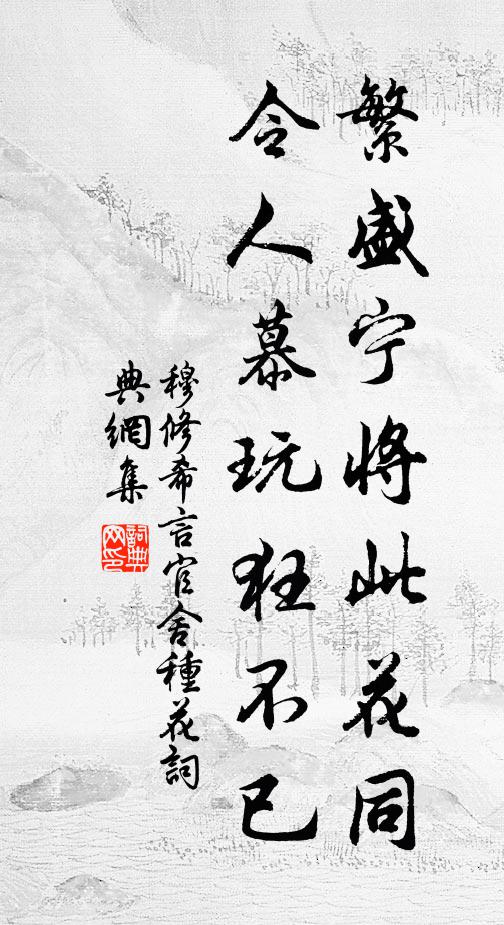 繁盛宁将此花同
令人慕玩狂不已
穆修希言官舍種花詞
典網集
詞典網印